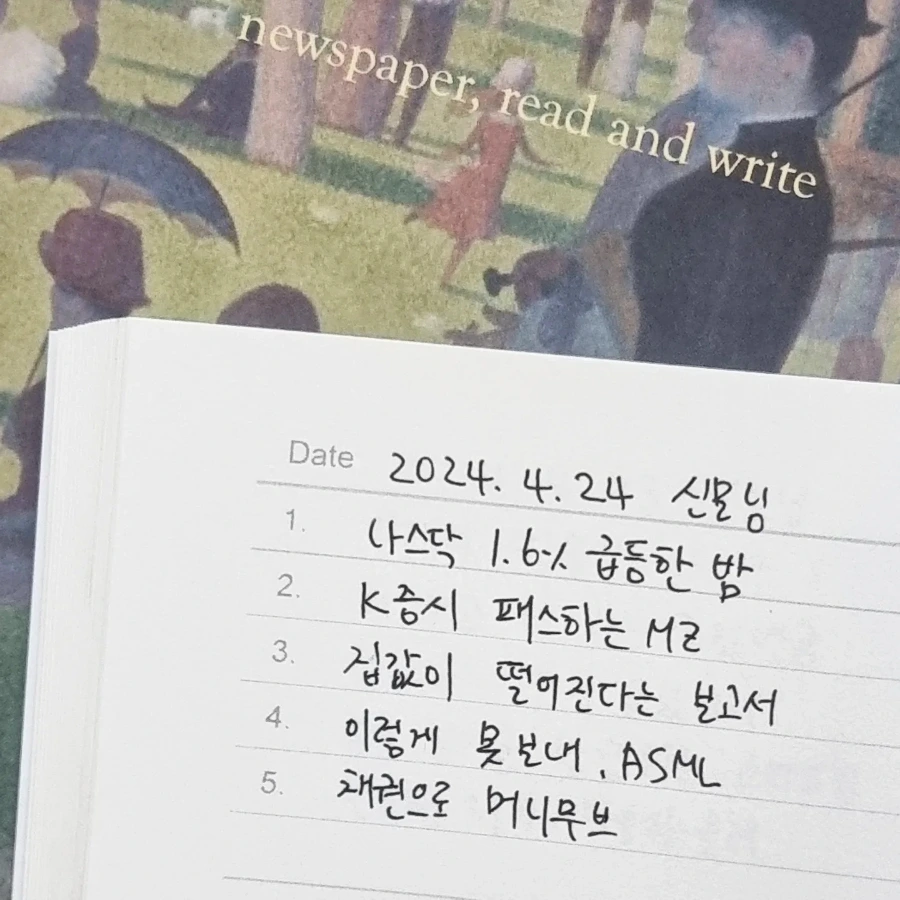 newspaper, read and write
Date 2024. 4. 24 신문님
1. 나스닥 1.6% 급등한 밤
2. K증시 패스하는 MZ
3. 집값이 떨어진다는 보고서
4. 이렇게 못 보내, ASML
5. 채권으로 머니무브